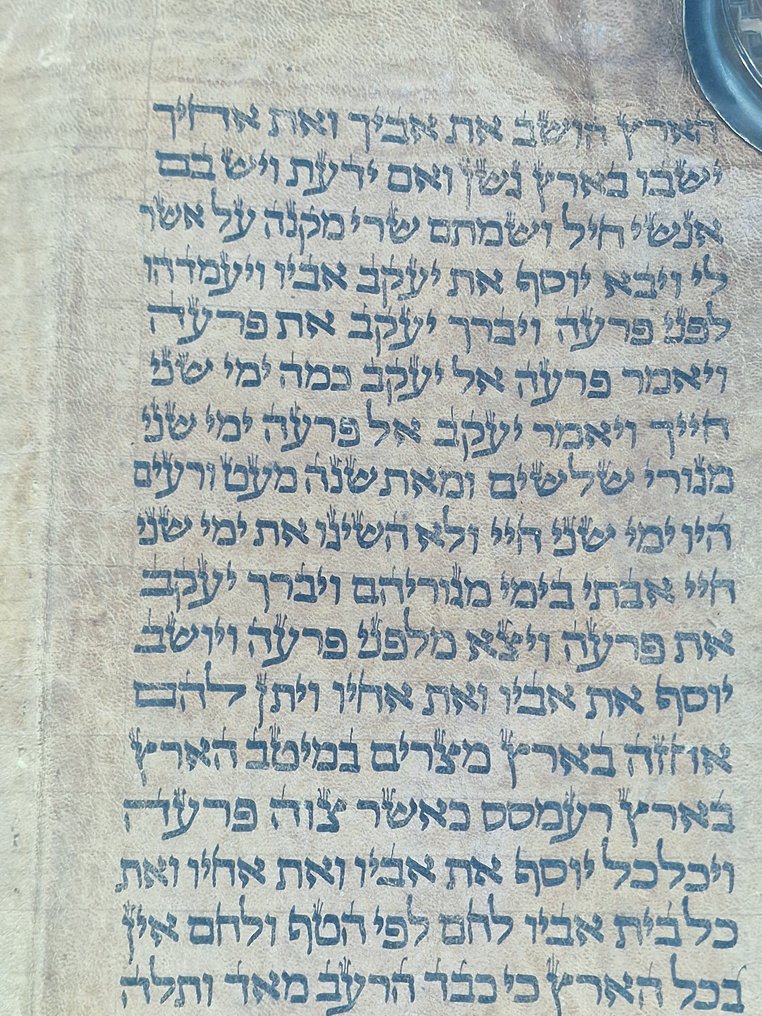 הארץ הושב את אביך ואת אחיך
ישבו בארץ גשן ואם ידעת ויש בם
אנשי חיל ושמתם שרי מקנה על אשר
לי ויבא יוסף את יעקב אביו ויעמדהו
לפני פרעה ויברך יעקב את פרעה
ויאמר פרעה אל יעקב כמה ימי שני
חייך ויאמר יעקב אל פרעה ימי שני
מגורי שלשים ומאת שנה מעט ורעים
היו ימי שני חיי ולא השיגו את ימי שני
חיי אבתי בימי מגוריהם ויברך יעקב
את פרעה ויצא מלפני פרעה ויושב
יוסף את אביו ואת אחיו ויתן להם
אחזה בארץ מצרים במיטב הארץ
בארץ רעמסס כאשר צוה פרעה
ויכלכל יוסף את אביו ואת אחיו ואת
כל בית אביו לחם לפי הטף ולחם אין
בכל הארץ כי כבד הרעב מאד ותלה